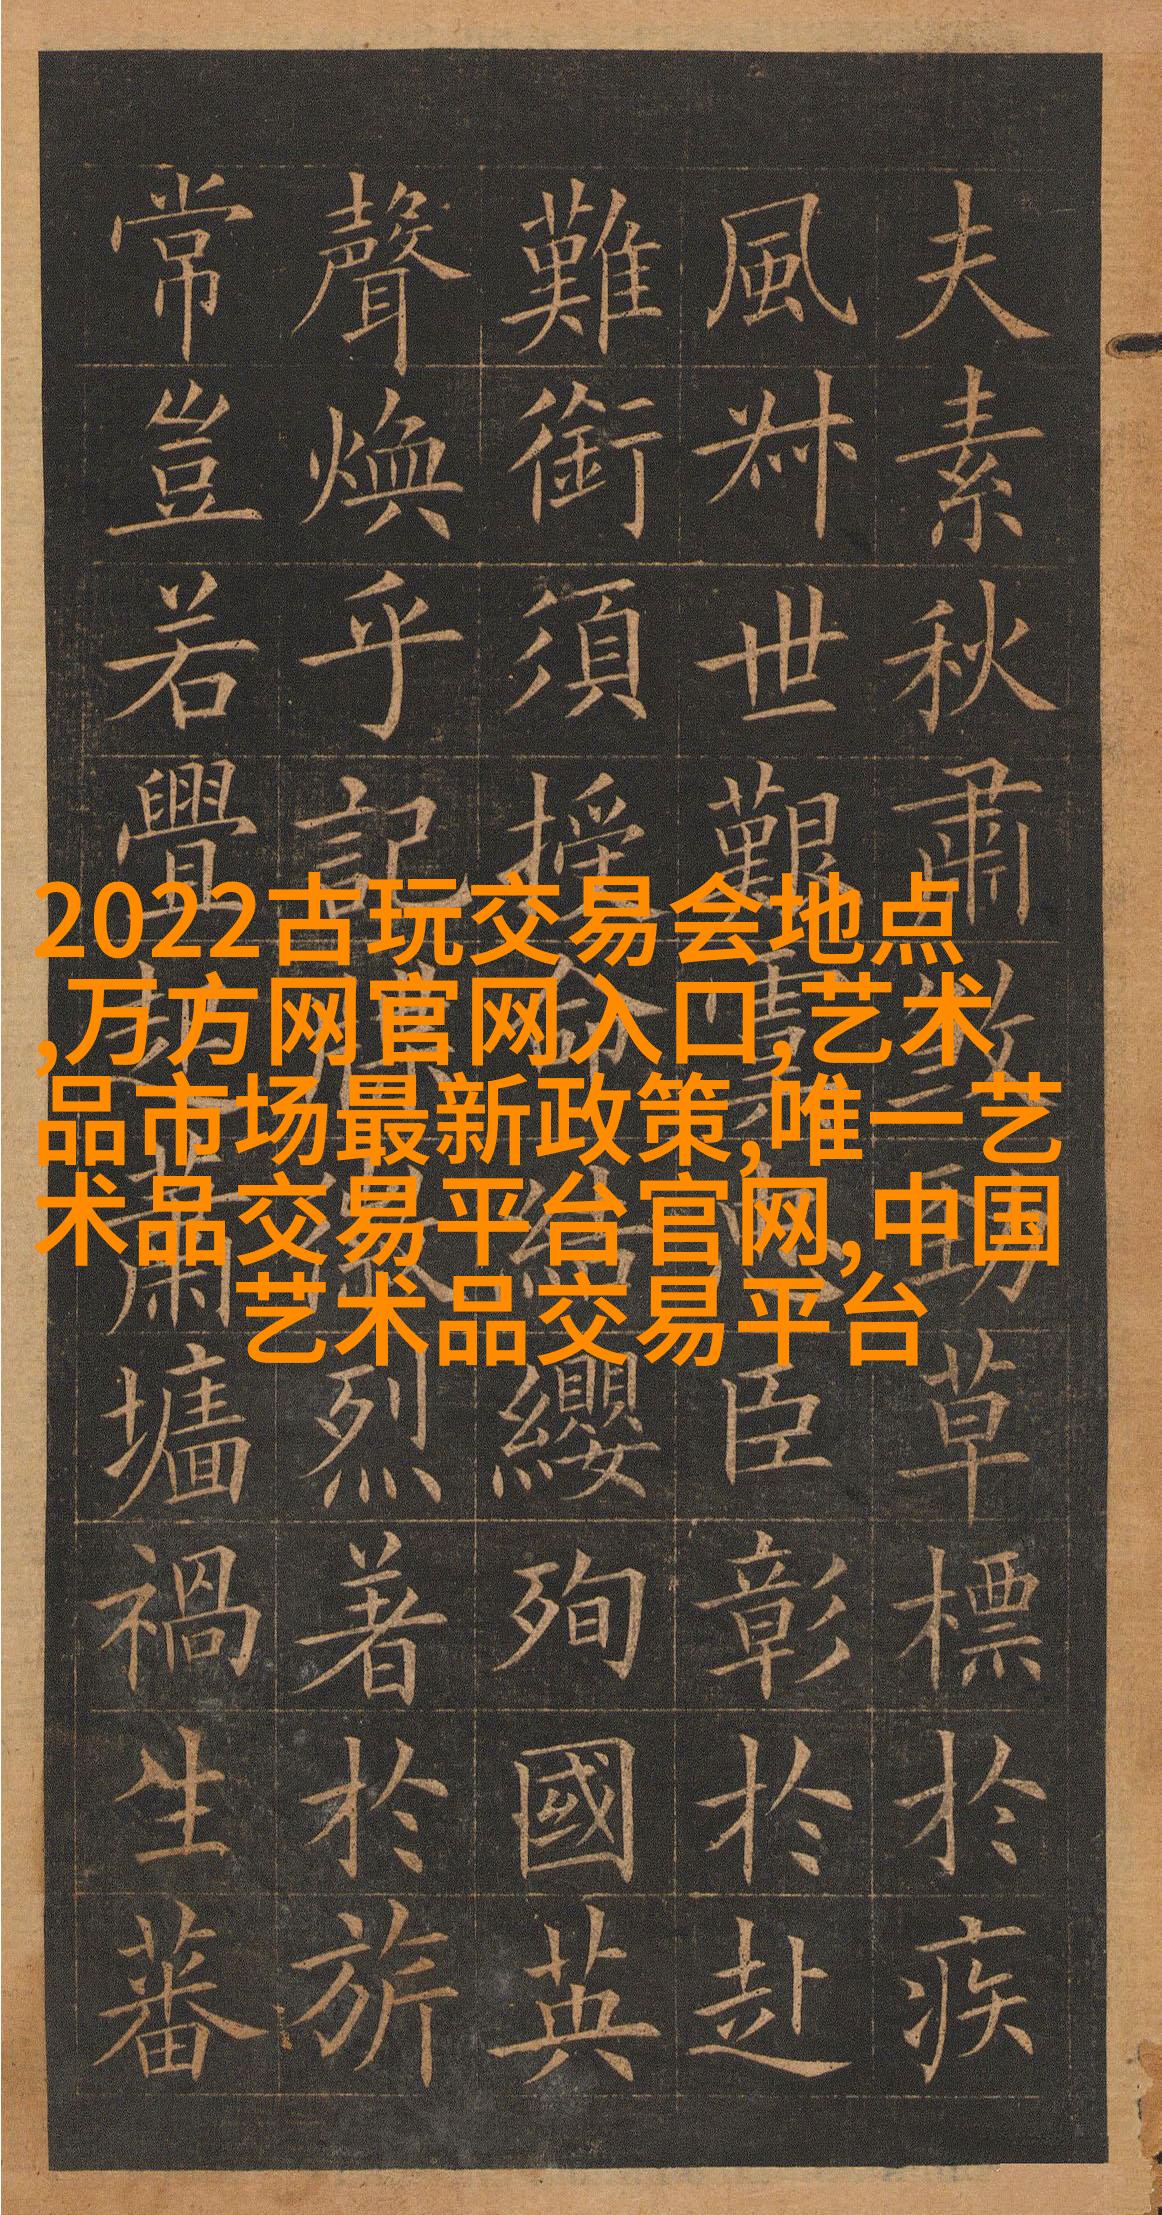 夫素秋肅煞勁草標於疾
風叔世艱虞忠臣彰於赴
難銜須授命結纓殉國英
聲煥乎記牒徽烈著於旂
常豈若舋起蕭墻禍生蕃
2022古玩交易会地点
,万方网官网入口,艺术
品市场最新政策,唯一艺
术品交易平台官网,中国
艺术品交易平台